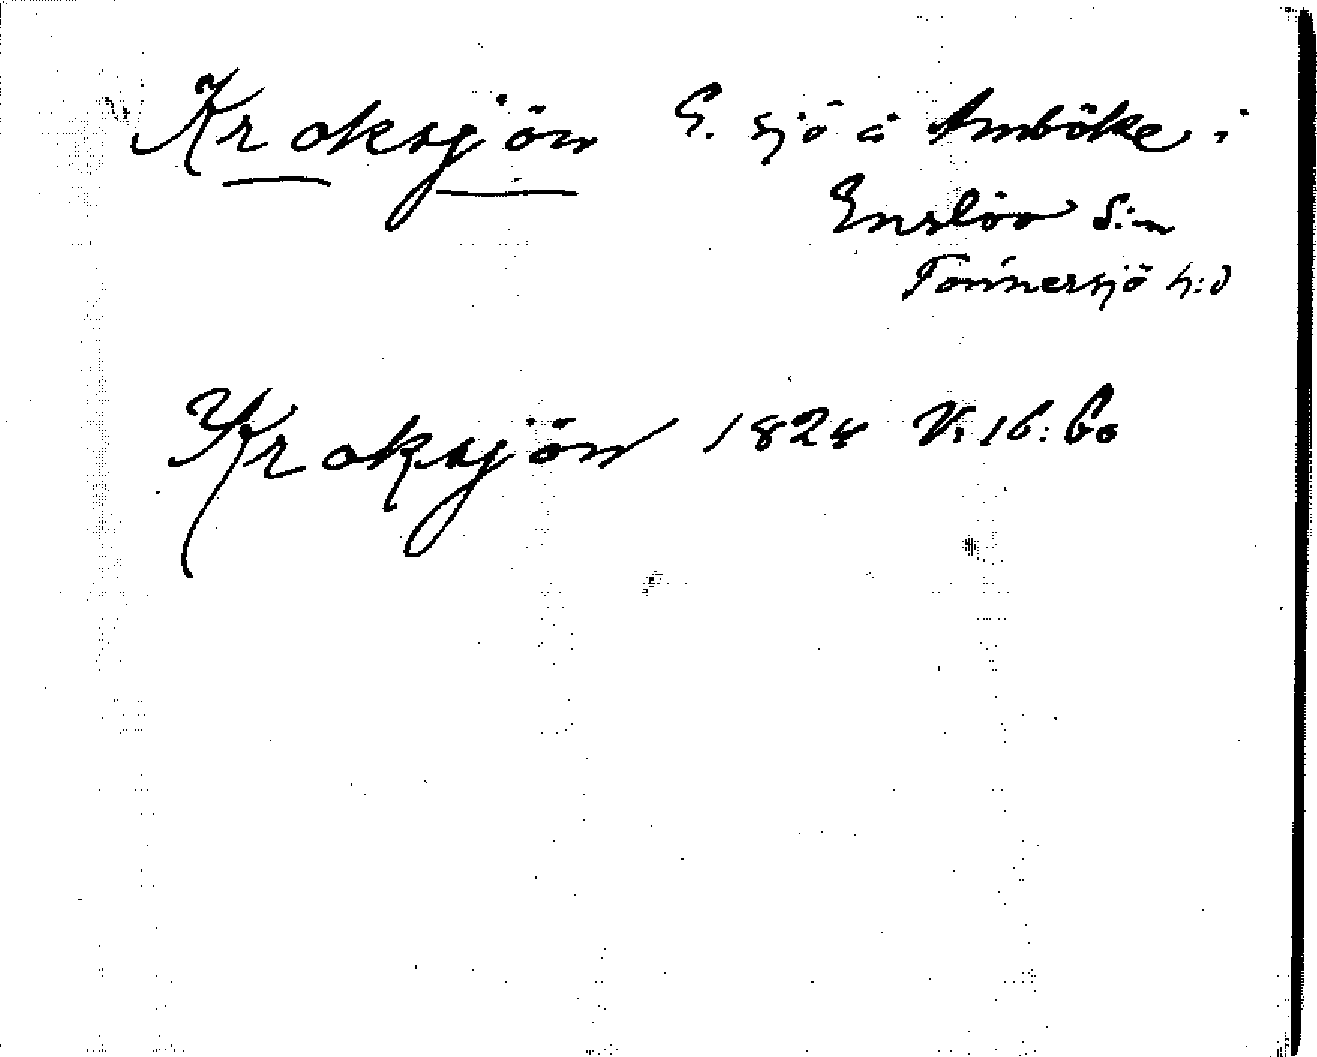 Kroksjön G. sjö å Amböke i
Enslöv S:n
Tönnersjö h:d
Kroksjön 1828 V. 16: 60